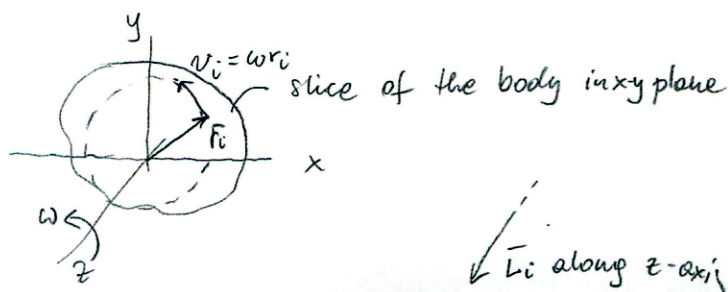 y
v̄i = ωri
slice of the body in xy plane
r̄i
x
ω
z
L̄i along z-axis